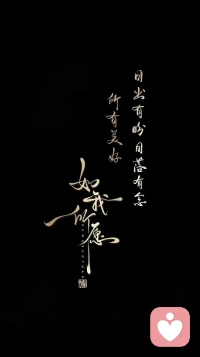 日出有盼 日落有念
所有美好
如我
所愿